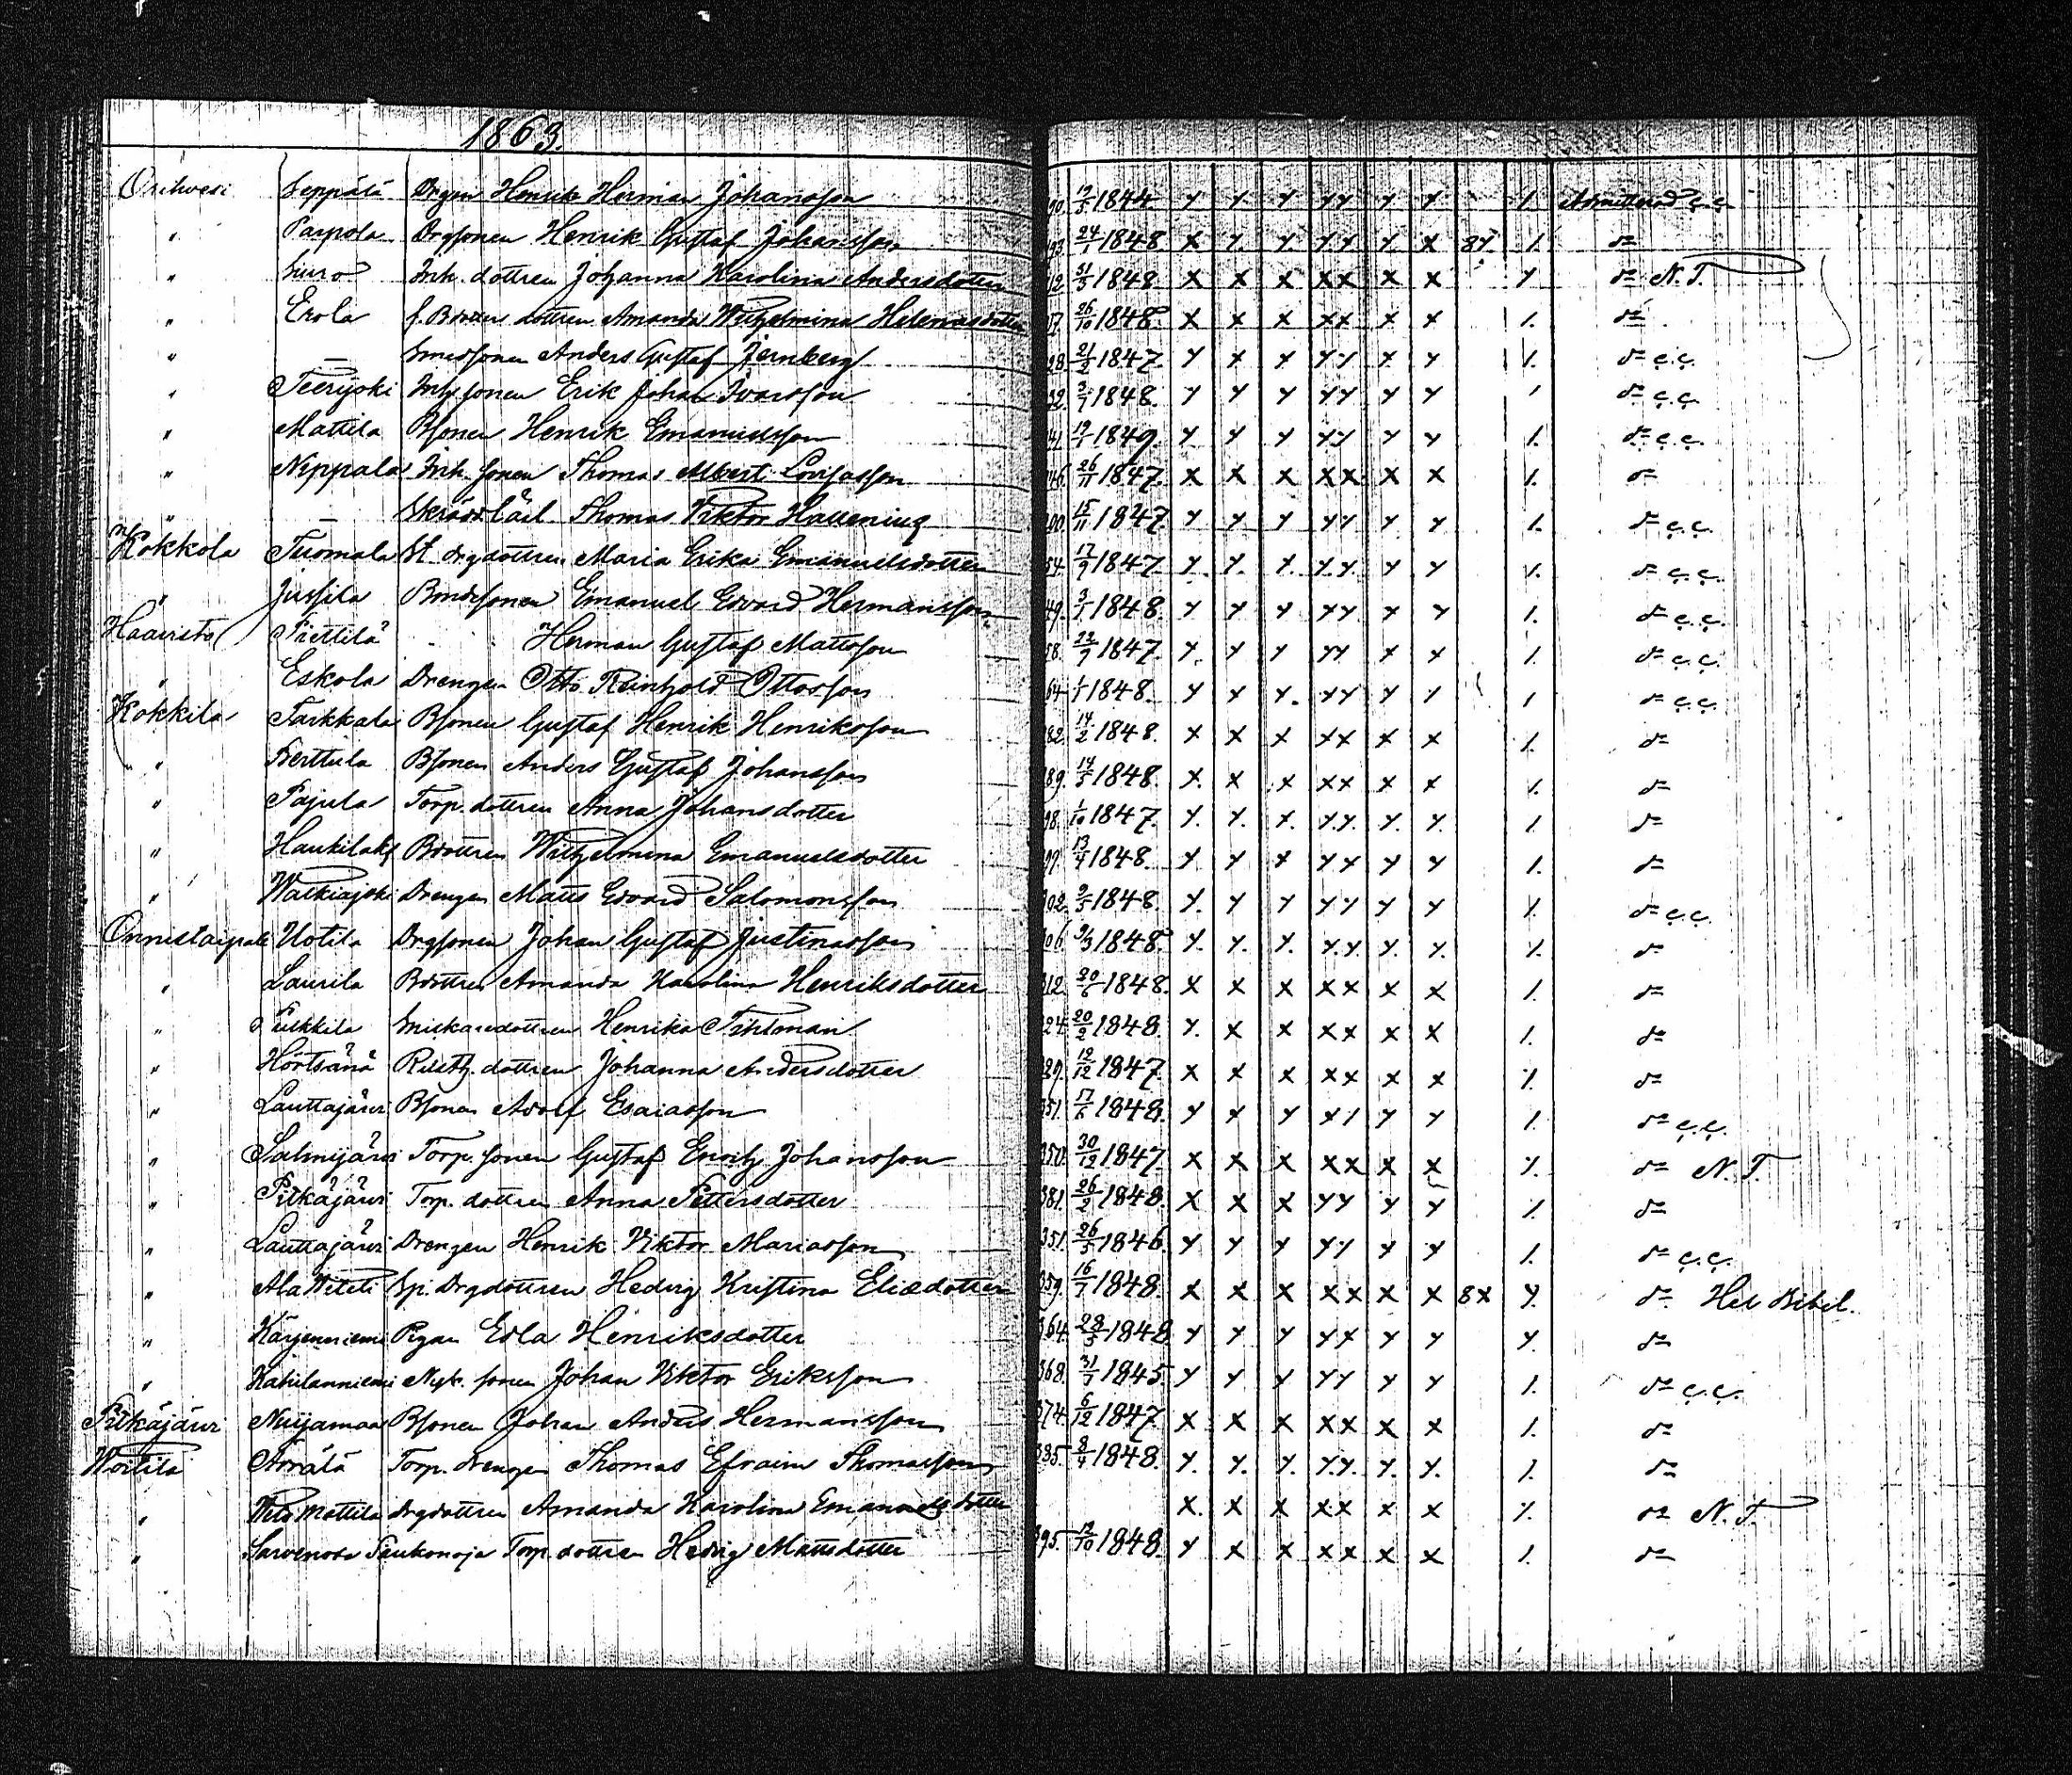 1863.
Orihvesi Seppälä Drgen Henrik Herman Johansson 90. 17/5 1844. y y. y yy y y 1. Admitterad c.c.
" Parpola Drgsonen Henrik Gustaf Johansson 193. 24/1 1848. x y. y y.y. y x 8y. 1. do
" Suro Inh. dottren Johanna Karolina Andersdotter 12. 31/3 1848. x x x xx x x y do N.T.
" Erola f. Bondens dottren Amanda Wilhelmina Helenasdotter 17. 26/10 1848. x x x xx x x 1. do
" — Smedsonen Anders Gustaf Jernberg 28. 21/2 1847. y x x yy x y 1. do c.c.
" Teerijoki Inhysonen Erik Johan Ivarsson 32. 3/7 1848. y y y yy y y 1 do c.c.
" Mattila Bsonen Henrik Emanuelsson 41. 19/1 1849. y y y yy y y 1. do c.c.
" Nippala Inh. sonen Thomas Albert Lovisasson 46. 26/11 1847. x x x xx x x 1. do
" — Skrädd.lärl. Thomas Viktor Hallenius 00. 15/11 1847. y y y yy y y 1. do c.c.
Kokkola Tuomala St. drgdottren Maria Erika Emanuelsdotter 54. 17/9 1847. y y. y. y.y. y y 1. do c.c.
" Jussila Bondsonen Emanuel Edvard Hermansson 49. 3/1 1848. y y y yy y y 1. do c.c.
Haavisto Pietilä " Herman Gustaf Mattsson 58. 22/7 1847. y. y y yy x x 1. do c.c.
" Eskola Drengen Otto Reinhold Ottosson 64. 1/1 1848. y y y. yy y y 1 do c.c.
Kokkila Tarkkala Bsonen Gustaf Henrik Henriksson 82. 14/2 1848. x x x xx x x 1. do
" Perttula Bsonen Anders Gustaf Johansson 89. 14/5 1848. x. x x xx x x 1. do
" Pajula Torp. dottren Anna Johansdotter 98. 1/10 1847. y. y. x. y.y. y. y. 1. do
" Haukilaks Bdottren Wilhelmina Emanuelsdotter 97. 13/4 1848. y y x yx y y 1. do
" Walkiajoki Drengen Matts Edvard Salomonsson 302. 9/5 1848. y. y y yy y y 1. do c.c.
Onnistaipale Uotila Drgsonen Johan Gustaf Justinasson 306. 9/3 1848. y. y. y. y.y. y. y. 1. do
" Laurila Bdottren Amanda Karolina Henriksdotter 312. 20/6 1848. x x x xx x x 1. do
" Pukkila Snickaredottren Henrika Tihlman 324. 20/2 1848. y. x x xx x x 1. do
" Hörtsänä Rusth. dottren Johanna Andersdotter 39. 12/12 1847. x x x xx x x 1. do
" Lauttajärvi Bsonen Adolf Esaiasson 351. 17/6 1848. y x y xy y y 1. do c.c.
" Salmijärvi Torp. sonen Gustaf Enoch Johansson 350. 30/12 1847. x x x xx x x y. do N.T.
" Pitkäjärvi Torp. dottren Anna Pettersdotter 381. 26/2 1848. x x x yy y y 1. do
" Lauttajärvi Drengen Henrik Viktor Mariasson 351. 26/5 1846. y y y yy y y 1. do c.c.
" Ala Witeli Sp. Drgdottren Hedvig Kristina Eliædotter 359. 16/7 1848. x x x xx x x 8x y. do Hel Bibel.
" Kärjenniemi Pigan Edla Henriksdotter 364. 28/5 1848 y y y yx y y y. do
" Kahilanniemi Nyb. sonen Johan Viktor Eriksson 368. 31/7 1845. y y y yy y y 1. do c.c.
Pitkäjärvi Nuijamaa Bsonen Johan Anders Hermansson 374. 6/12 1847. x x x xx x x 1. do
Woitila Arrälä Torp. drengen Thomas Efraim Thomasson 385. 8/4 1848. y. y. y. y.y. y. y. 1. do
" Mattila drgdottren Amanda Karolina Emanuelsdotter x. x x xx x x y. do N.T.
" Paukonoja Torp. dottren Hedvig Mattsdotter 395. 12/10 1848. y x x xx x x 1. do